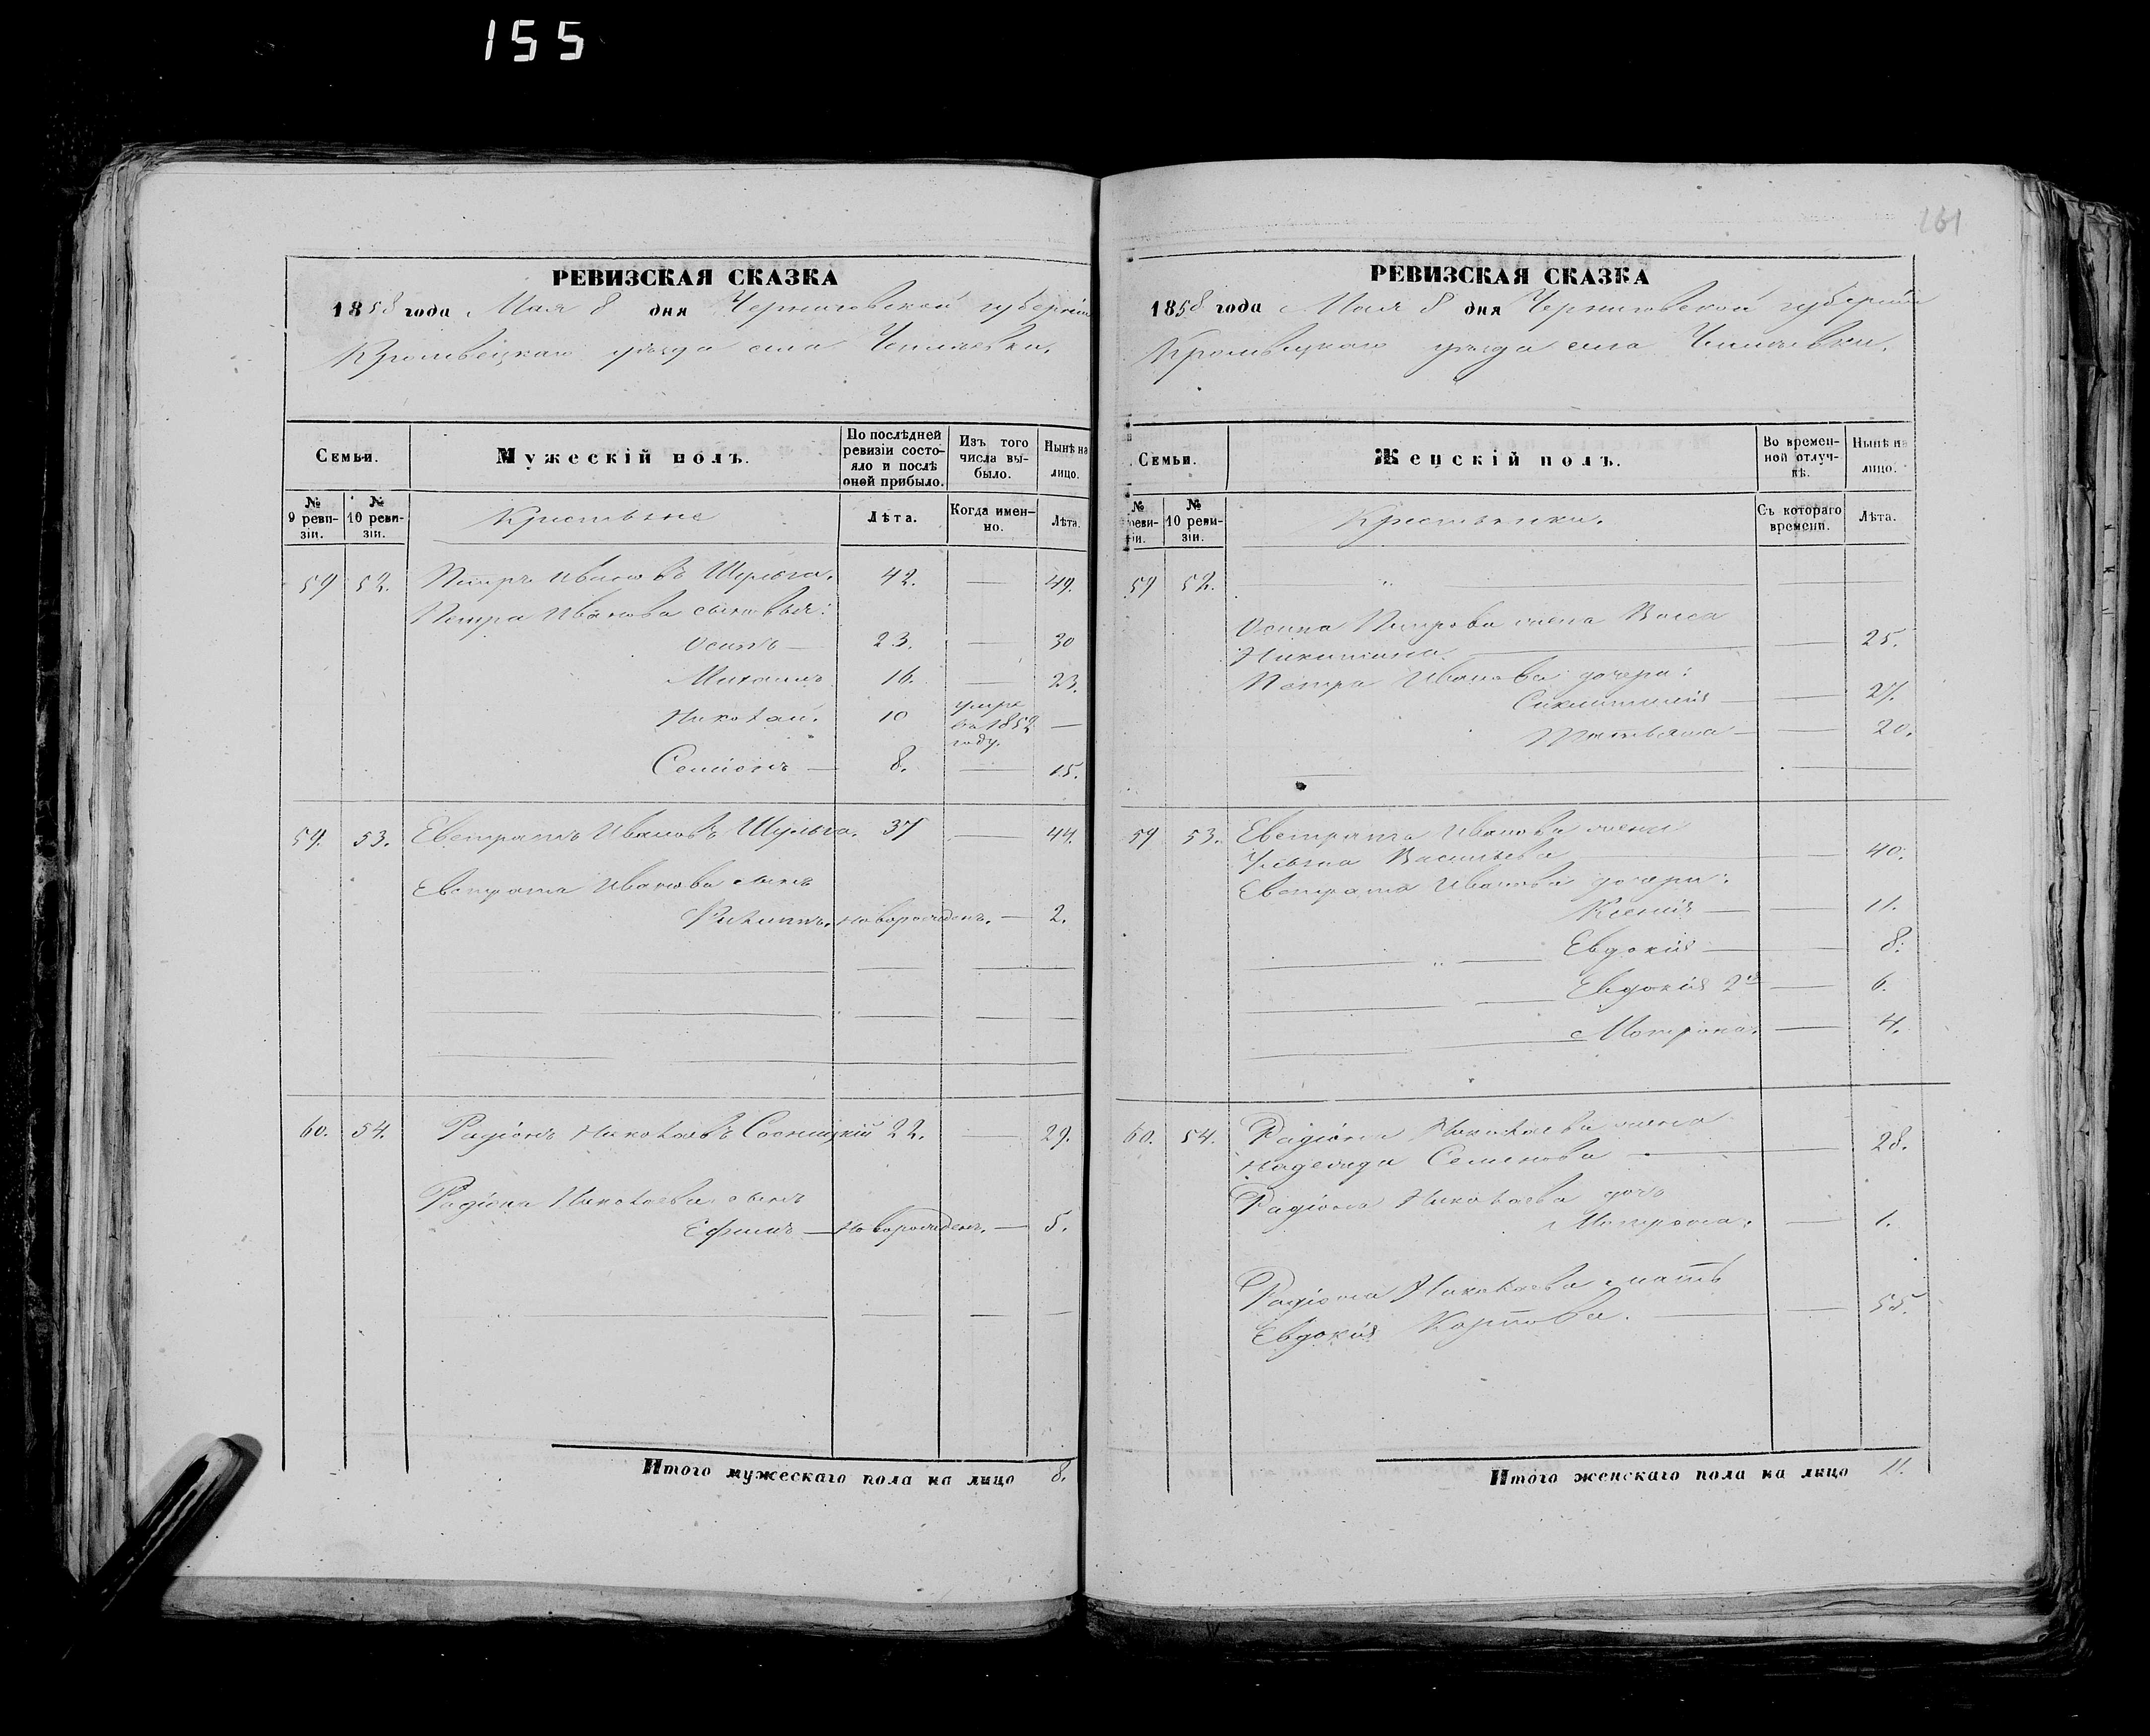 155
161
РЕВИЗСКАЯ СКАЗКА
1858 года Мая 8 дня Черниговской губерніи
Кролевецкаго уѣзда села
Семьи.
Мужескій полъ.
По послѣдней ревизіи состояло и послѣ оной прибыло.
Изъ того числа выбыло.
Нынѣ на лицо.
№ 9 ревизіи.
№ 10 ревизіи.
Крестьяне
Лѣта.
Когда именно.
Лѣта.
59 52. Петръ Ивановъ Шульга. 42. — 49.
Петра Иванова сыновья:
Осипъ — 23. — 30
Михаилъ 16. — 23.
Николай. 10 умре въ 1852 году. —
Семіонъ — 8. — 15.
59. 53. Евстратъ Ивановъ Шульга. 37 — 44.
Евстрата Иванова сынъ
Филиппъ. новорожденъ. — 2.
60. 54. Радіонъ Николаевъ Сосницкій 22. — 29.
Радіона Николаева сынъ
Ефимъ — новорожденъ. — 5.
Итого мужескаго пола на лицо 8.
РЕВИЗСКАЯ СКАЗКА
1858 года Мая 8 дня Черниговской губерніи
Кролевецкаго уѣзда села
Семьи.
Женскій полъ.
Во временной отлучкѣ.
Нынѣ на лицо.
№ реви-іи.
№ 10 ревизіи.
Крестьянки.
Съ котораго времени.
Лѣта.
59 52.
Осипа Петрова жена Васса
Никитина — 25.
Петра Иванова дочери:
— 27.
— 20.
59 53. Евстрата Иванова жена
Ульяна Васильева — 40.
Евстрата Иванова дочери:
Ксенія — 11.
Евдокія — 8.
Евдокія 2я — 6.
Мотрона. — 4.
60. 54. Радіона Николаева жена
Надежда Семенова — 28.
Радіона Николаева дочь
Мотрона. — 1.
Радіона Николаева мать
Евдокія Карпова. — 55.
Итого женскаго пола на лицо 11.